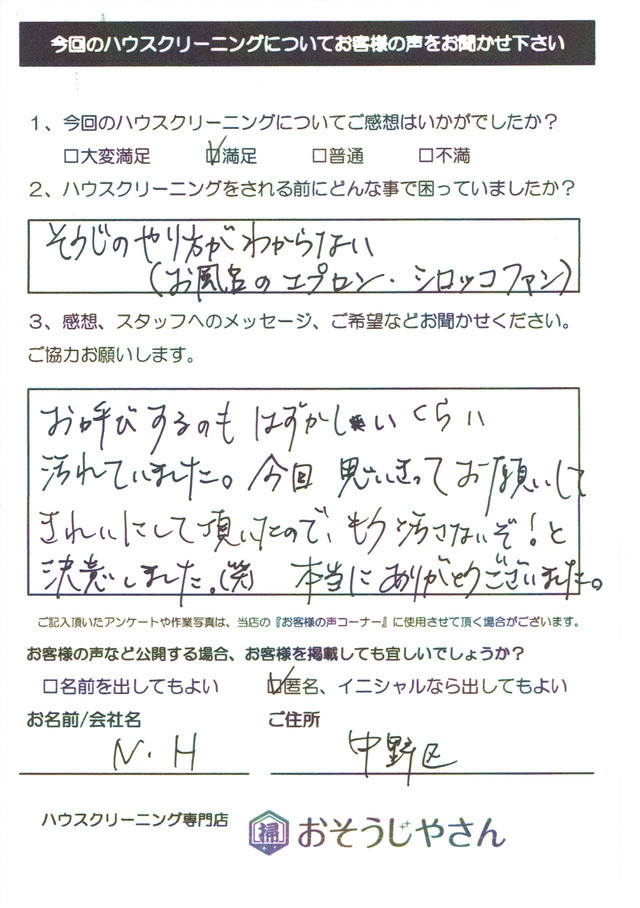 今回のハウスクリーニングについてお客様の声をお聞かせ下さい
1、今回のハウスクリーニングについてご感想はいかがでしたか？
□大変満足 ☑満足 □普通 □不満
2、ハウスクリーニングをされる前にどんな事で困っていましたか？
そうじのやり方がわからない
(お風呂のエプロン・シロッコファン)
3、感想、スタッフへのメッセージ、ご希望などお聞かせください。
ご協力お願いします。
お呼びするのもはずかしいくらい
汚れていました。今回思いきってお願いして
きれいにして頂いたので、もう汚さないぞ！と
決意しました。(笑) 本当にありがとうございました。
ご記入頂いたアンケートや作業写真は、当店の『お客様の声コーナー』に使用させて頂く場合がございます。
お客様の声など公開する場合、お客様を掲載しても宜しいでしょうか？
□名前を出してもよい ☑匿名、イニシャルなら出してもよい
お名前/会社名 ご住所
N・H 中野区
ハウスクリーニング専門店 掃 おそうじやさん